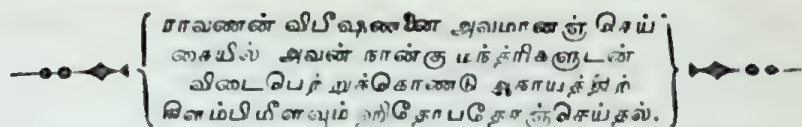 ராவணன் விபீஷணனை அவமானஞ் செய்
கையில் அவன் நான்கு மந்த்ரிகளுடன்
விடைபெற்றுக்கொண்டு ஆகாயத்திற்
கிளம்பிமீளவும் ஹிதோபதேசஞ்செய்தல்.